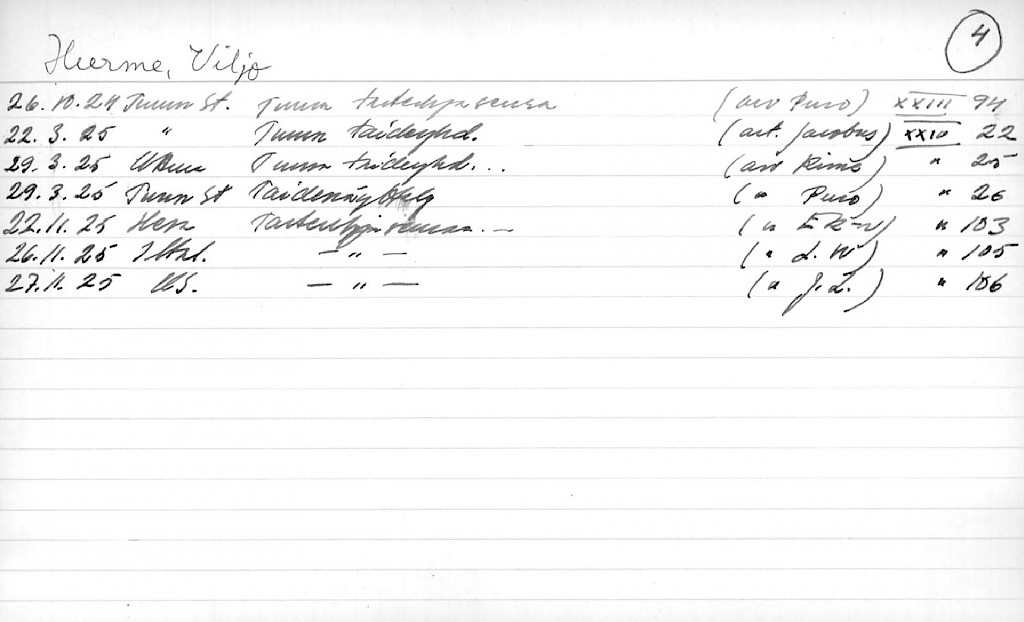 4
Hurme, Viljo
26.10.24 Turun St. Turun taiteilijaseura (arv Puro) XXIII 94
22.3.25 " Turun taideyhd. (art. Jacobus) XXIV 22
29.3.25 Turun taideyhd... (arv Rimo) " 25
29.3.25 Turun St Taidenäyttely (" Puro) " 26
22.11.25 Taiteilijaseuran.- (" E R-r) " 103
26.11.25 Iltal. - " - (" L.W) " 105
27.11.25 US. - " - (" J.L.) " 106